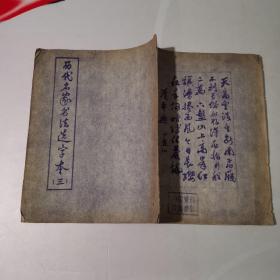 历代名家书法选字本
(三)
天高云淡望断南飞雁
不到长城非好汉屈指行程
二万 六盘山上高峰红
旗漫卷西风今日长缨
在手何时缚住苍龙
清平乐 六盘山